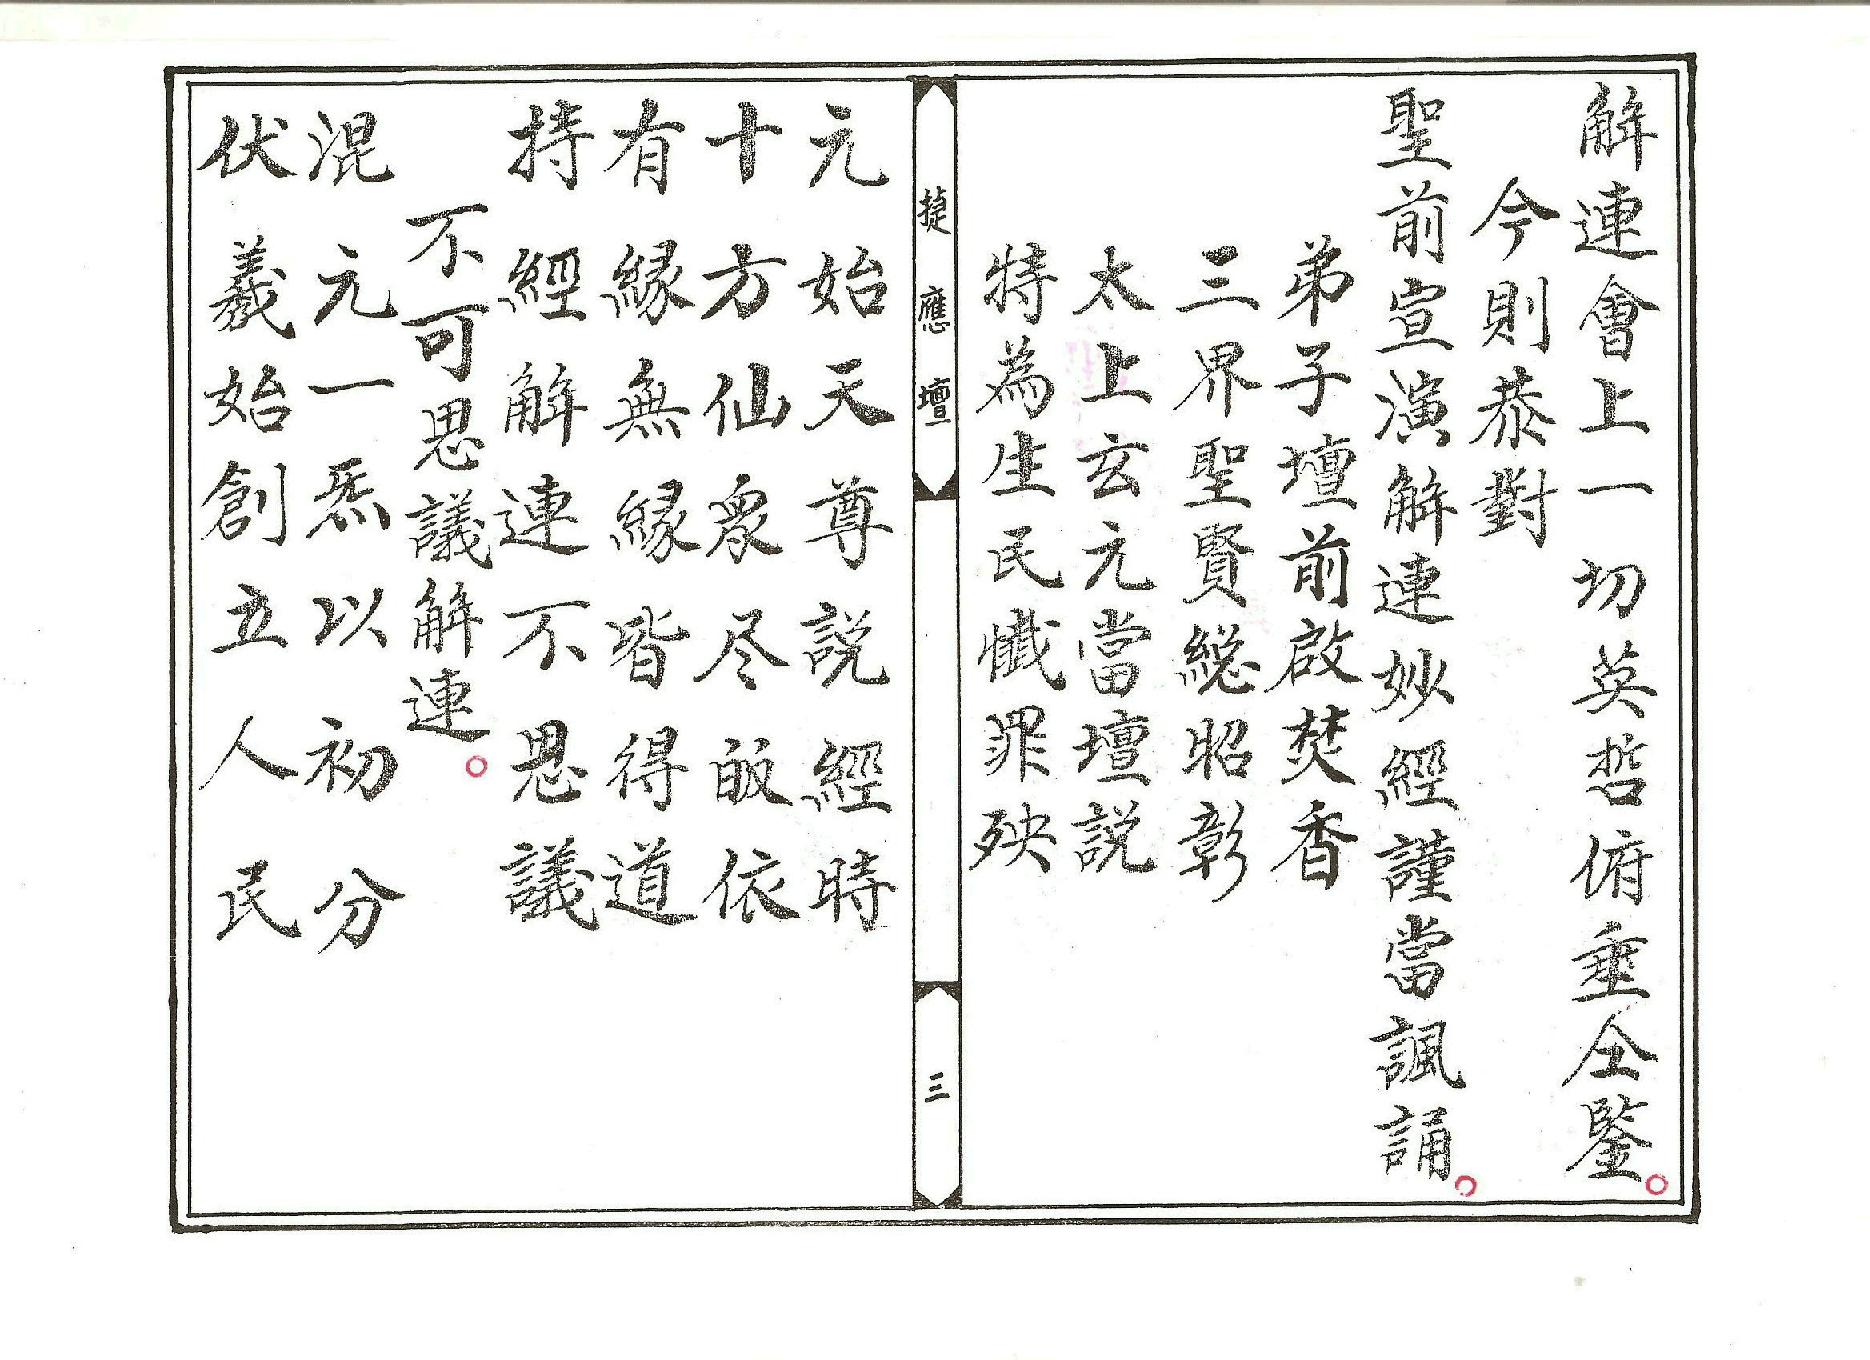 解連會上一切英哲俯垂仝鑒
今則恭對
聖前宣演解連妙經謹當諷誦
弟子壇前啟焚香
三界聖賢緫昭彰
太上玄元當壇説
特為生民懺罪殃
捷應壇
三
元始天尊説經時
十方仙眾尽皈依
有縁無縁皆得道
持經解連不思議
不可思議解連
混元一炁以初分
伏羲始創立人民